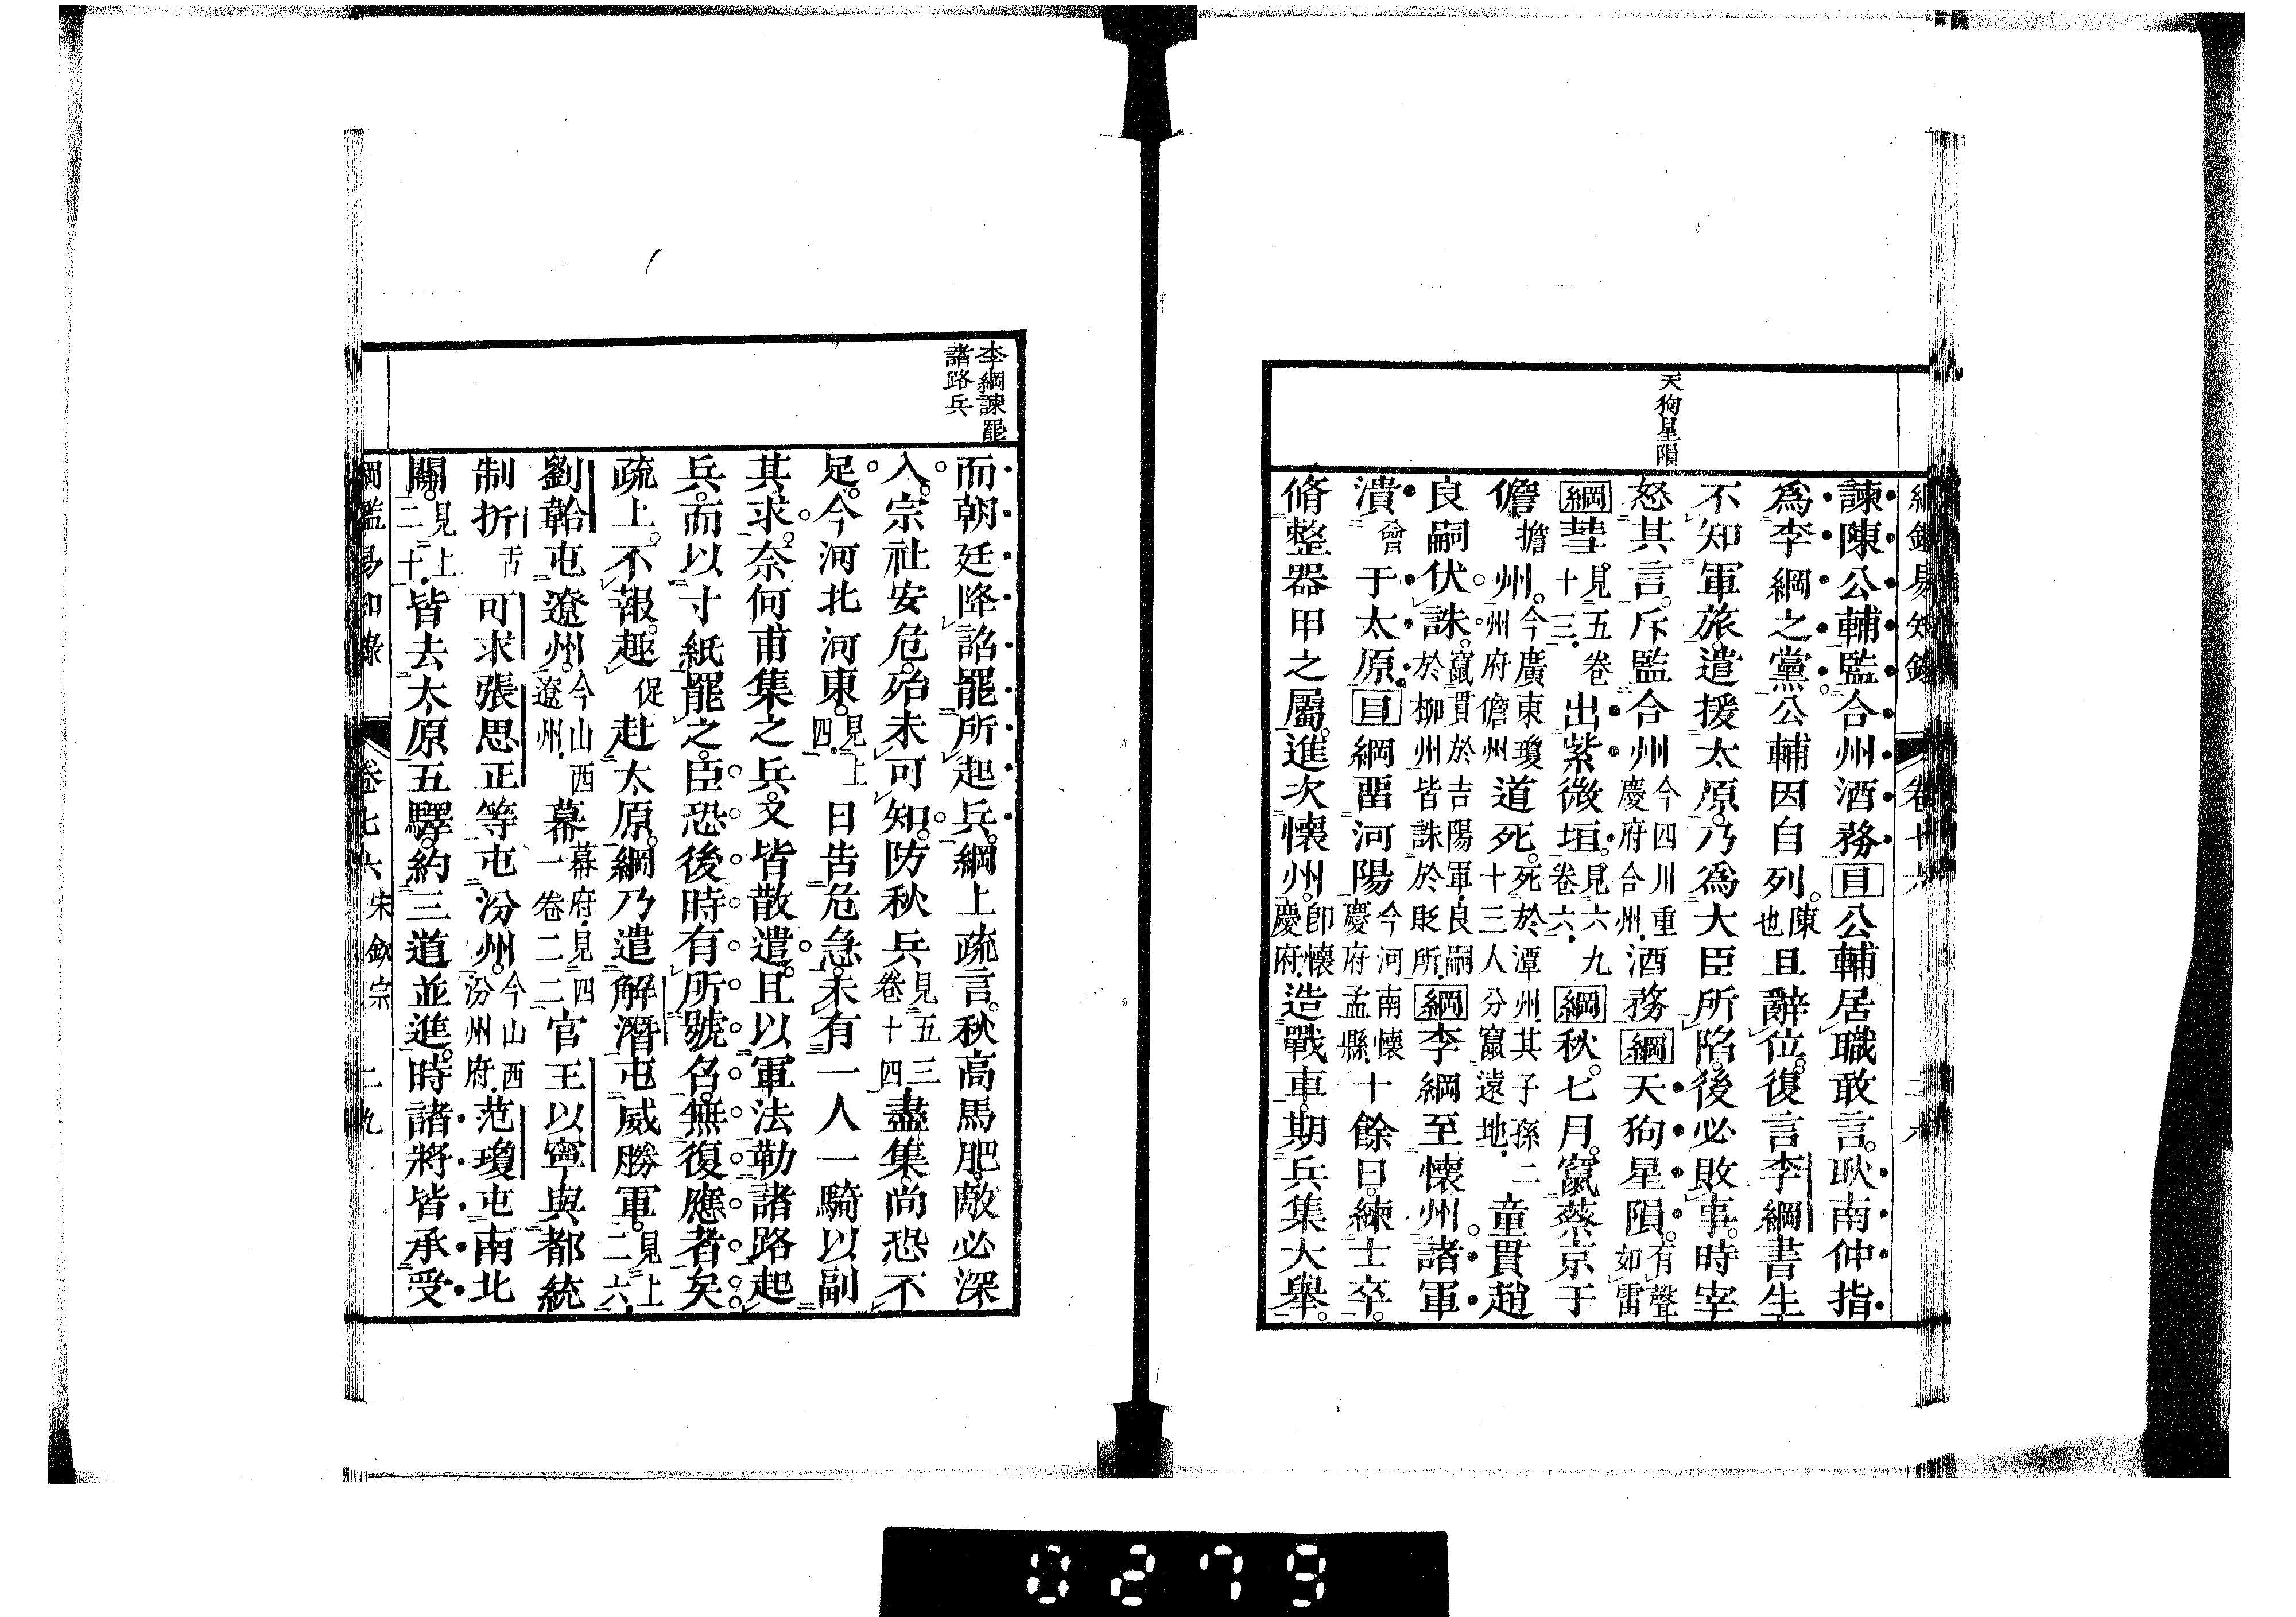 天狗星隕
諫陳公輔監合州酒務目公輔居職敢言。耿南仲指
爲李綱之黨。公輔因自列。陳也且辭位。復言李綱書生。
不知軍旅。遣援太原。乃爲大臣所陷。後必敗事。時宰
怒其言。斥監合州今四川重慶府合州酒務綱天狗星隕。有聲如雷
綱彗見五卷十三出紫微垣。見六九卷六綱秋。七月。竄蔡京于
儋擔州。今廣東瓊州府儋州道死。死於潭州其子孫二十三人分竄遠地童貫趙
良嗣伏誅。竄貫於吉陽軍良嗣於柳州皆誅於貶所綱李綱至懷州。諸軍
潰會于太原。目綱畱河陽今河南懷慶府孟縣十餘日。練士卒。
脩整器甲之屬。進次懷州。卽懷慶府造戰車。期兵集大舉。
李綱諫罷
諸路兵
而朝廷降詔罷所起兵。綱上疏言。秋高馬肥。敵必深
入。宗社安危。殆未可知。防秋兵見五三卷十四盡集。尚恐不
足。今河北河東。見上四日告危急。未有一人一騎以副
其求。奈何甫集之兵。又皆散遣。且以軍法勒諸路起
兵。而以寸紙罷之。臣恐後時有所號召。無復應者矣。
疏上。不報。趣促赴太原。綱乃遣解潛屯威勝軍。見上二六
劉韐屯遼州。今山西遼州幕幕府見四一卷二二官王以寧與都統
制折舌可求張思正等屯汾州。今山西汾州府范瓊屯南北
關。見上二十皆去太原五驛。約三道並進。時諸將皆承受
綱鑑易知錄 卷七六 宋欽宗 二九